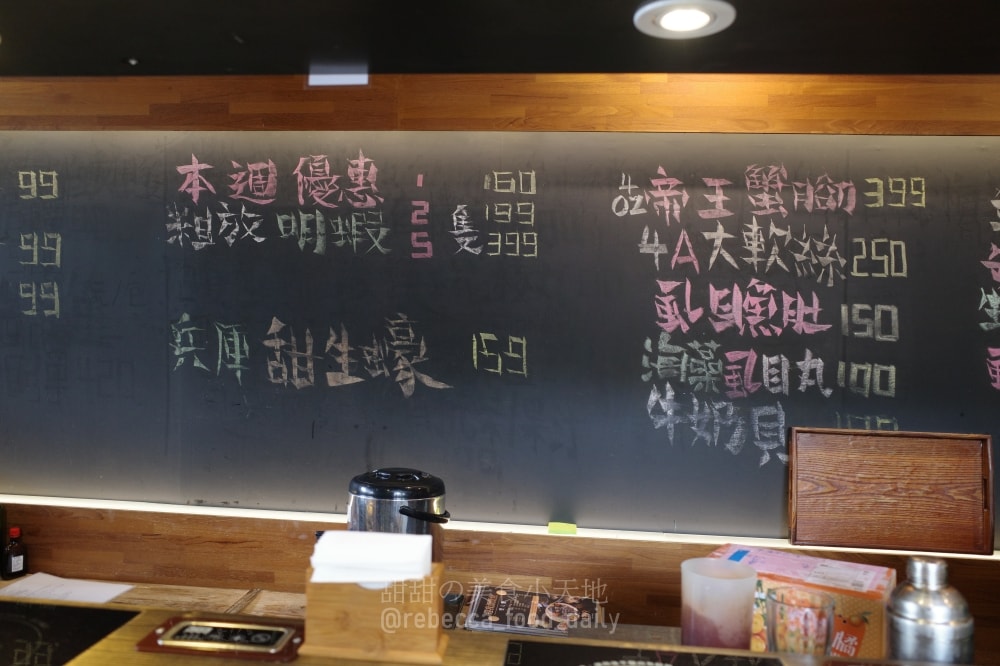 99
99
99
本週優惠 1 160
粗放明蝦 2 隻 199
5 399
兵庫甜生蠔 159
4oz 帝王蟹腳 399
4A大軟絲 250
虱目魚肚 150
海藻虱目丸 100
牛奶貝
甜甜の美食小天地
@rebecca_food_daily